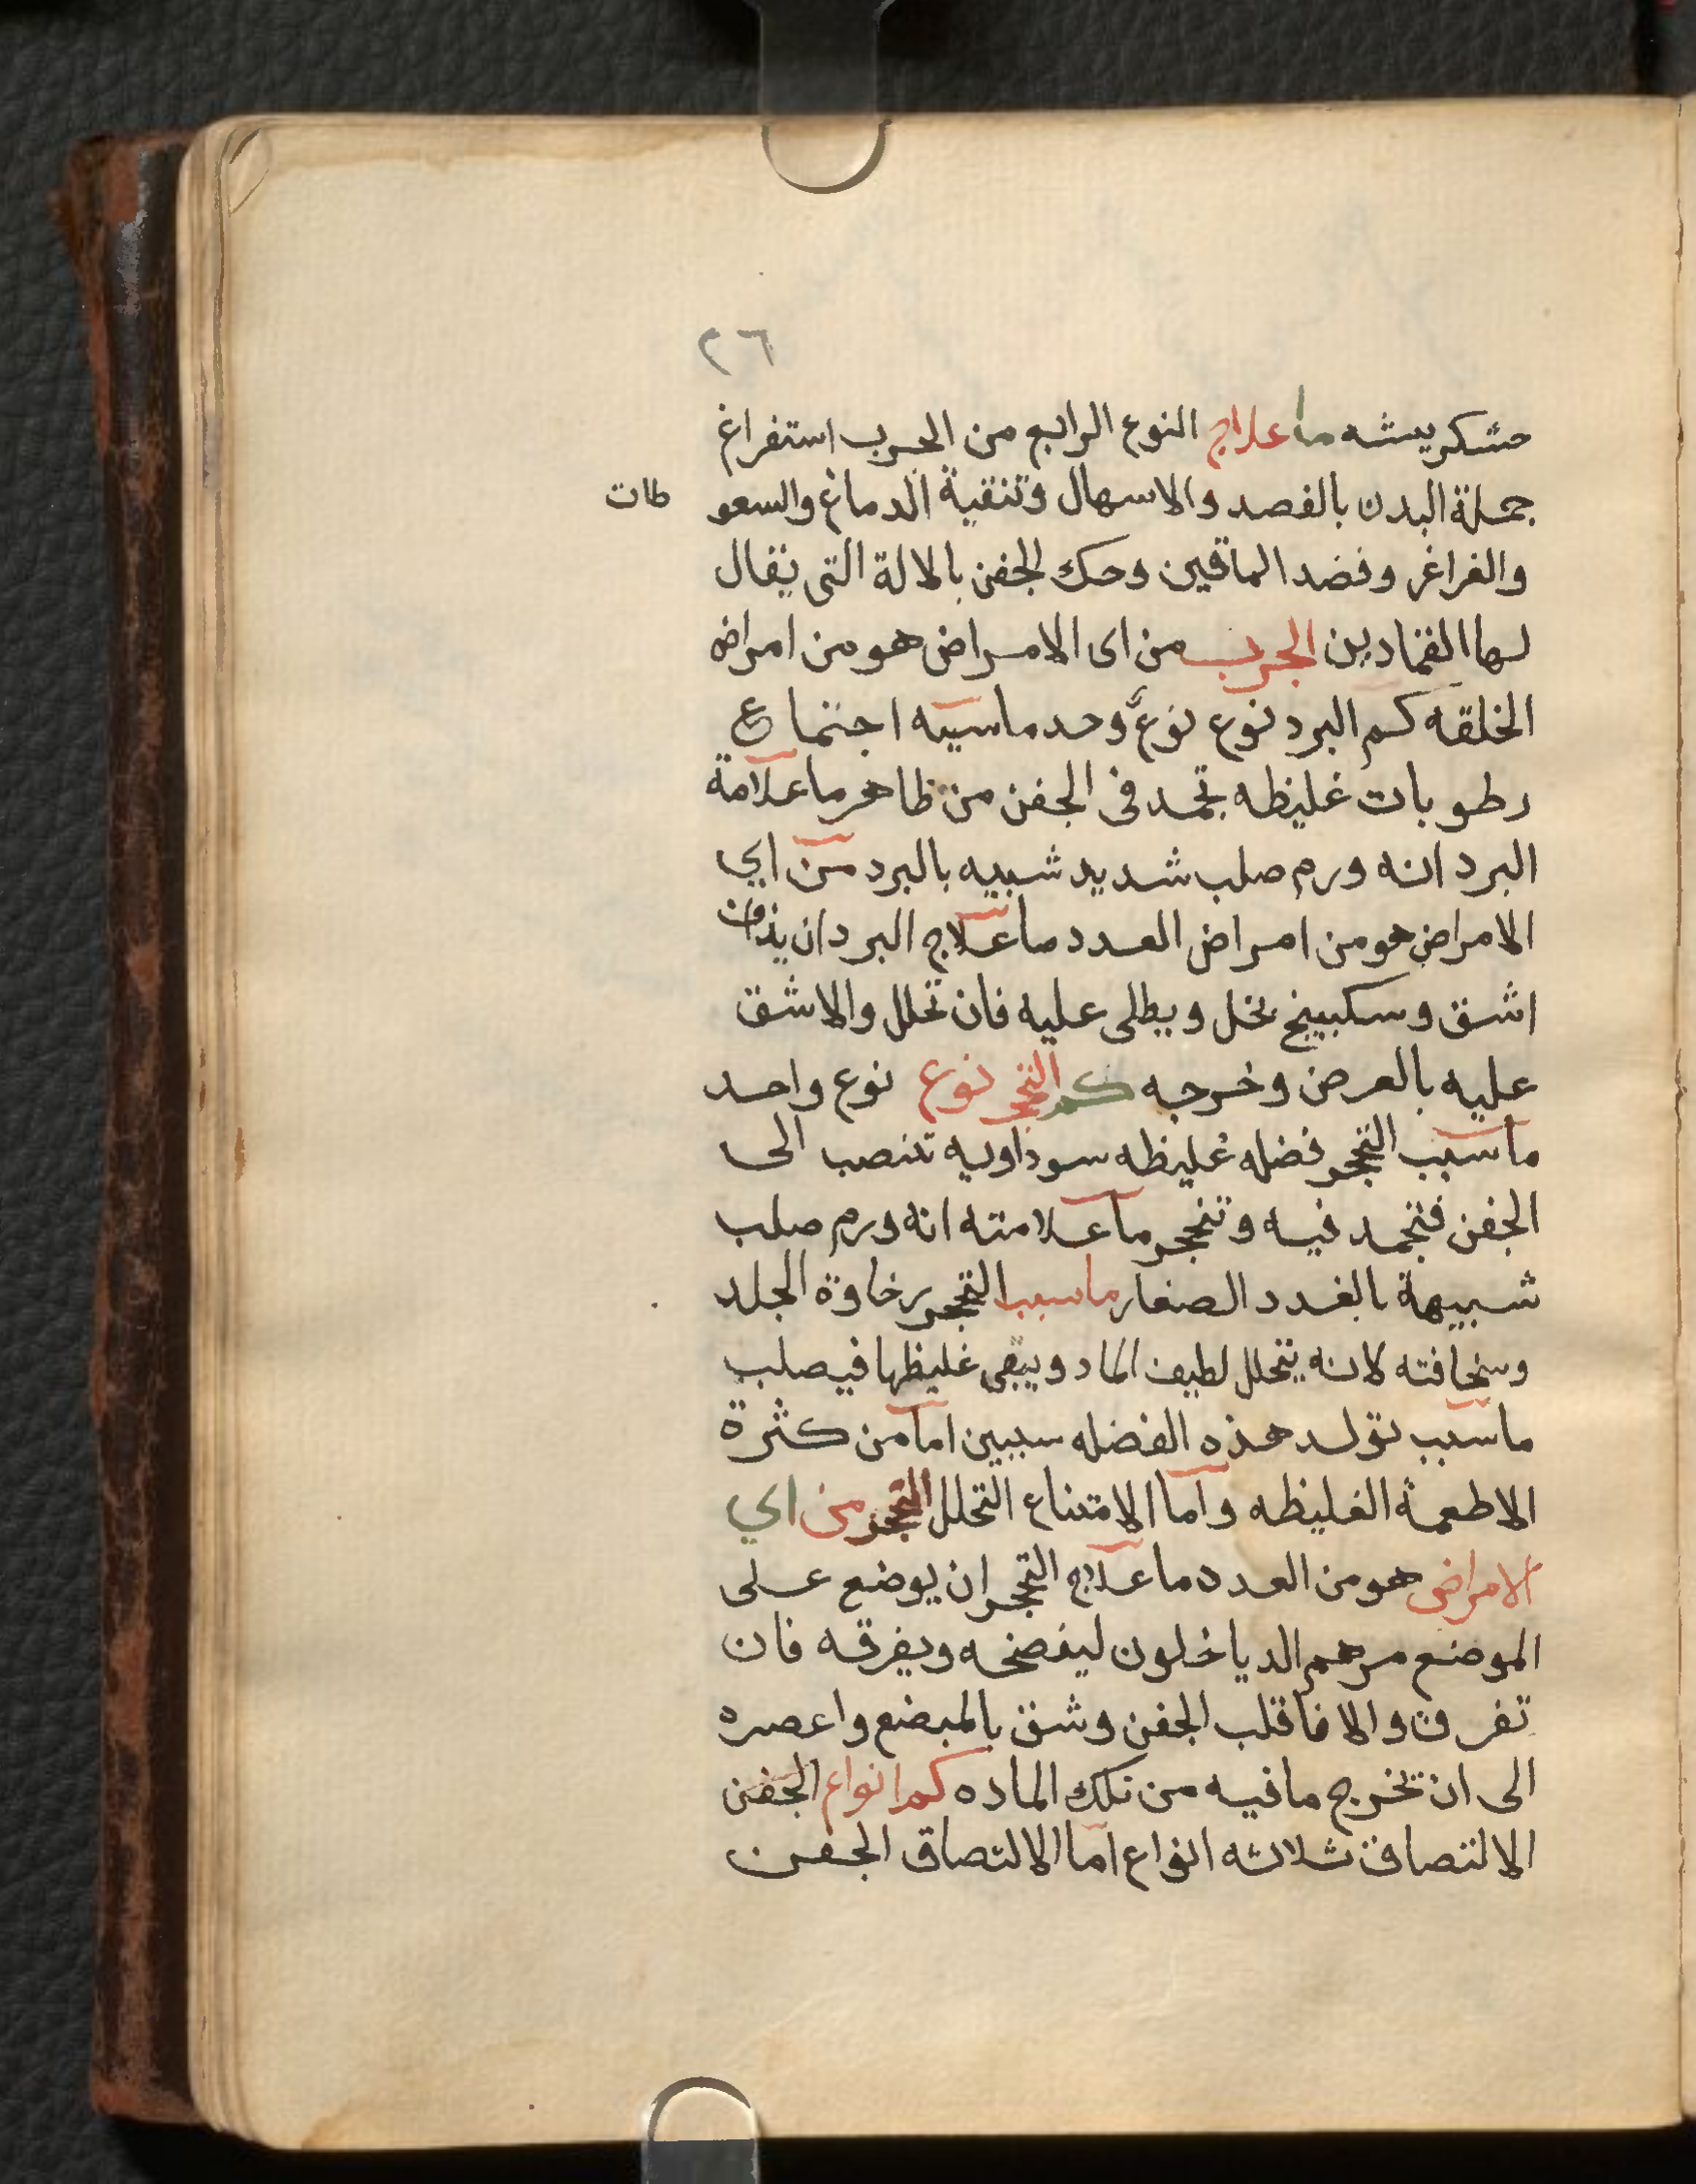 ٢٦
حشكريشه ما علاج النوع الرابع من الجرب استفراغ
جملة البدن بالفصد والاسهال وتنقية الدماغ والسعو طات
والغراغر وفصد الماقين وحك الجفن بالالة التى يقال
لها القمادين الجرب من اى الامراض هو من امراض
الخلقه كم البرد نوع نوعٌ وحد ما سببه اجتماع
رطوبات غليظه تجمد فى الجفن من ظاهر ما علامة
البرد انه ورم صلب شديد شبيه بالبرد من اي
الامراض هو من امراض العدد ما علاج البرد ان يذاف
اشق وسكبينج بخل ويطلى عليه فان تحلل والا شق
عليه بالعرض وخرجه كم التحجر نوع نوع واحد
ما سبب التحجر فضله غليظه سوداويه تنصب الى
الجفن فتجمد فيه وتتحجر ما علامته انه ورم صلب
شبيهة بالغدد الصغار ما سبب التحجر رخاوة الجلد
وسخافته لانه يتحلل لطيف الماد ويبقى غليظها فيصلب
ما سبب تولد هذه الفضله سببين اما من كثرة
الاطعمة الغليظه واما الامتناع التحلل التحجر من اي
الامراض هو من العدد ما علاج التحجر ان يوضع على
الموضع مرهم الدياخلون ليفضخه ويفرقه فان
تفرق والا فاقلب الجفن وشق بالمبضع واعصره
الى ان تخرج ما فيه من تلك الماده كم انواع الجفن
الالتصاق ثلاثه انواع اما الالتصاق الجفن